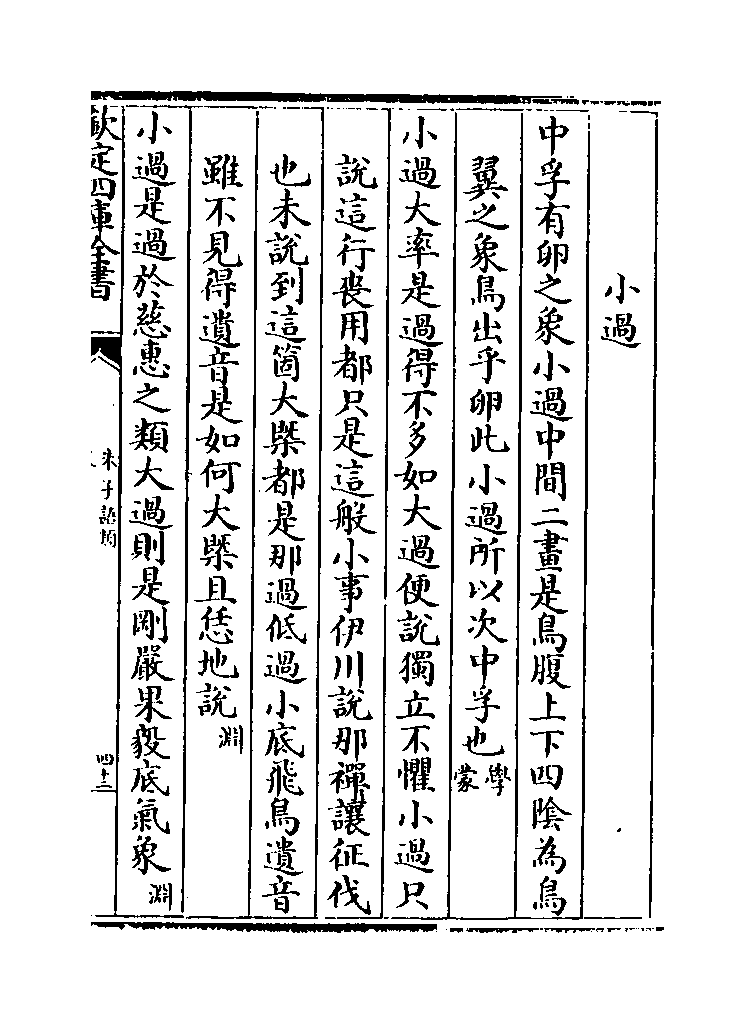 小過
中孚有卵之象小過中間二畫是鳥腹上下四隂為鳥
翼之象鳥出乎卵此小過所以次中孚也學蒙
小過大率是過得不多如大過便說獨立不懼小過只
說這行喪用都只是這般小事伊川說那禪讓征伐
也未說到這箇大槩都是那過低過小底飛鳥遺音
雖不見得遺音是如何大槩且恁地說淵
小過是過於慈惠之類大過則是剛嚴果毅底氣象淵
欽定四庫全書
朱子語類
四十三